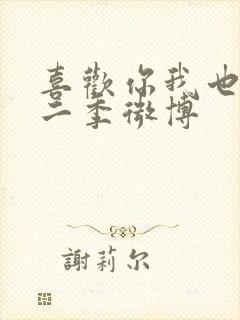 喜歡你我也
二季微博
謝莉尔